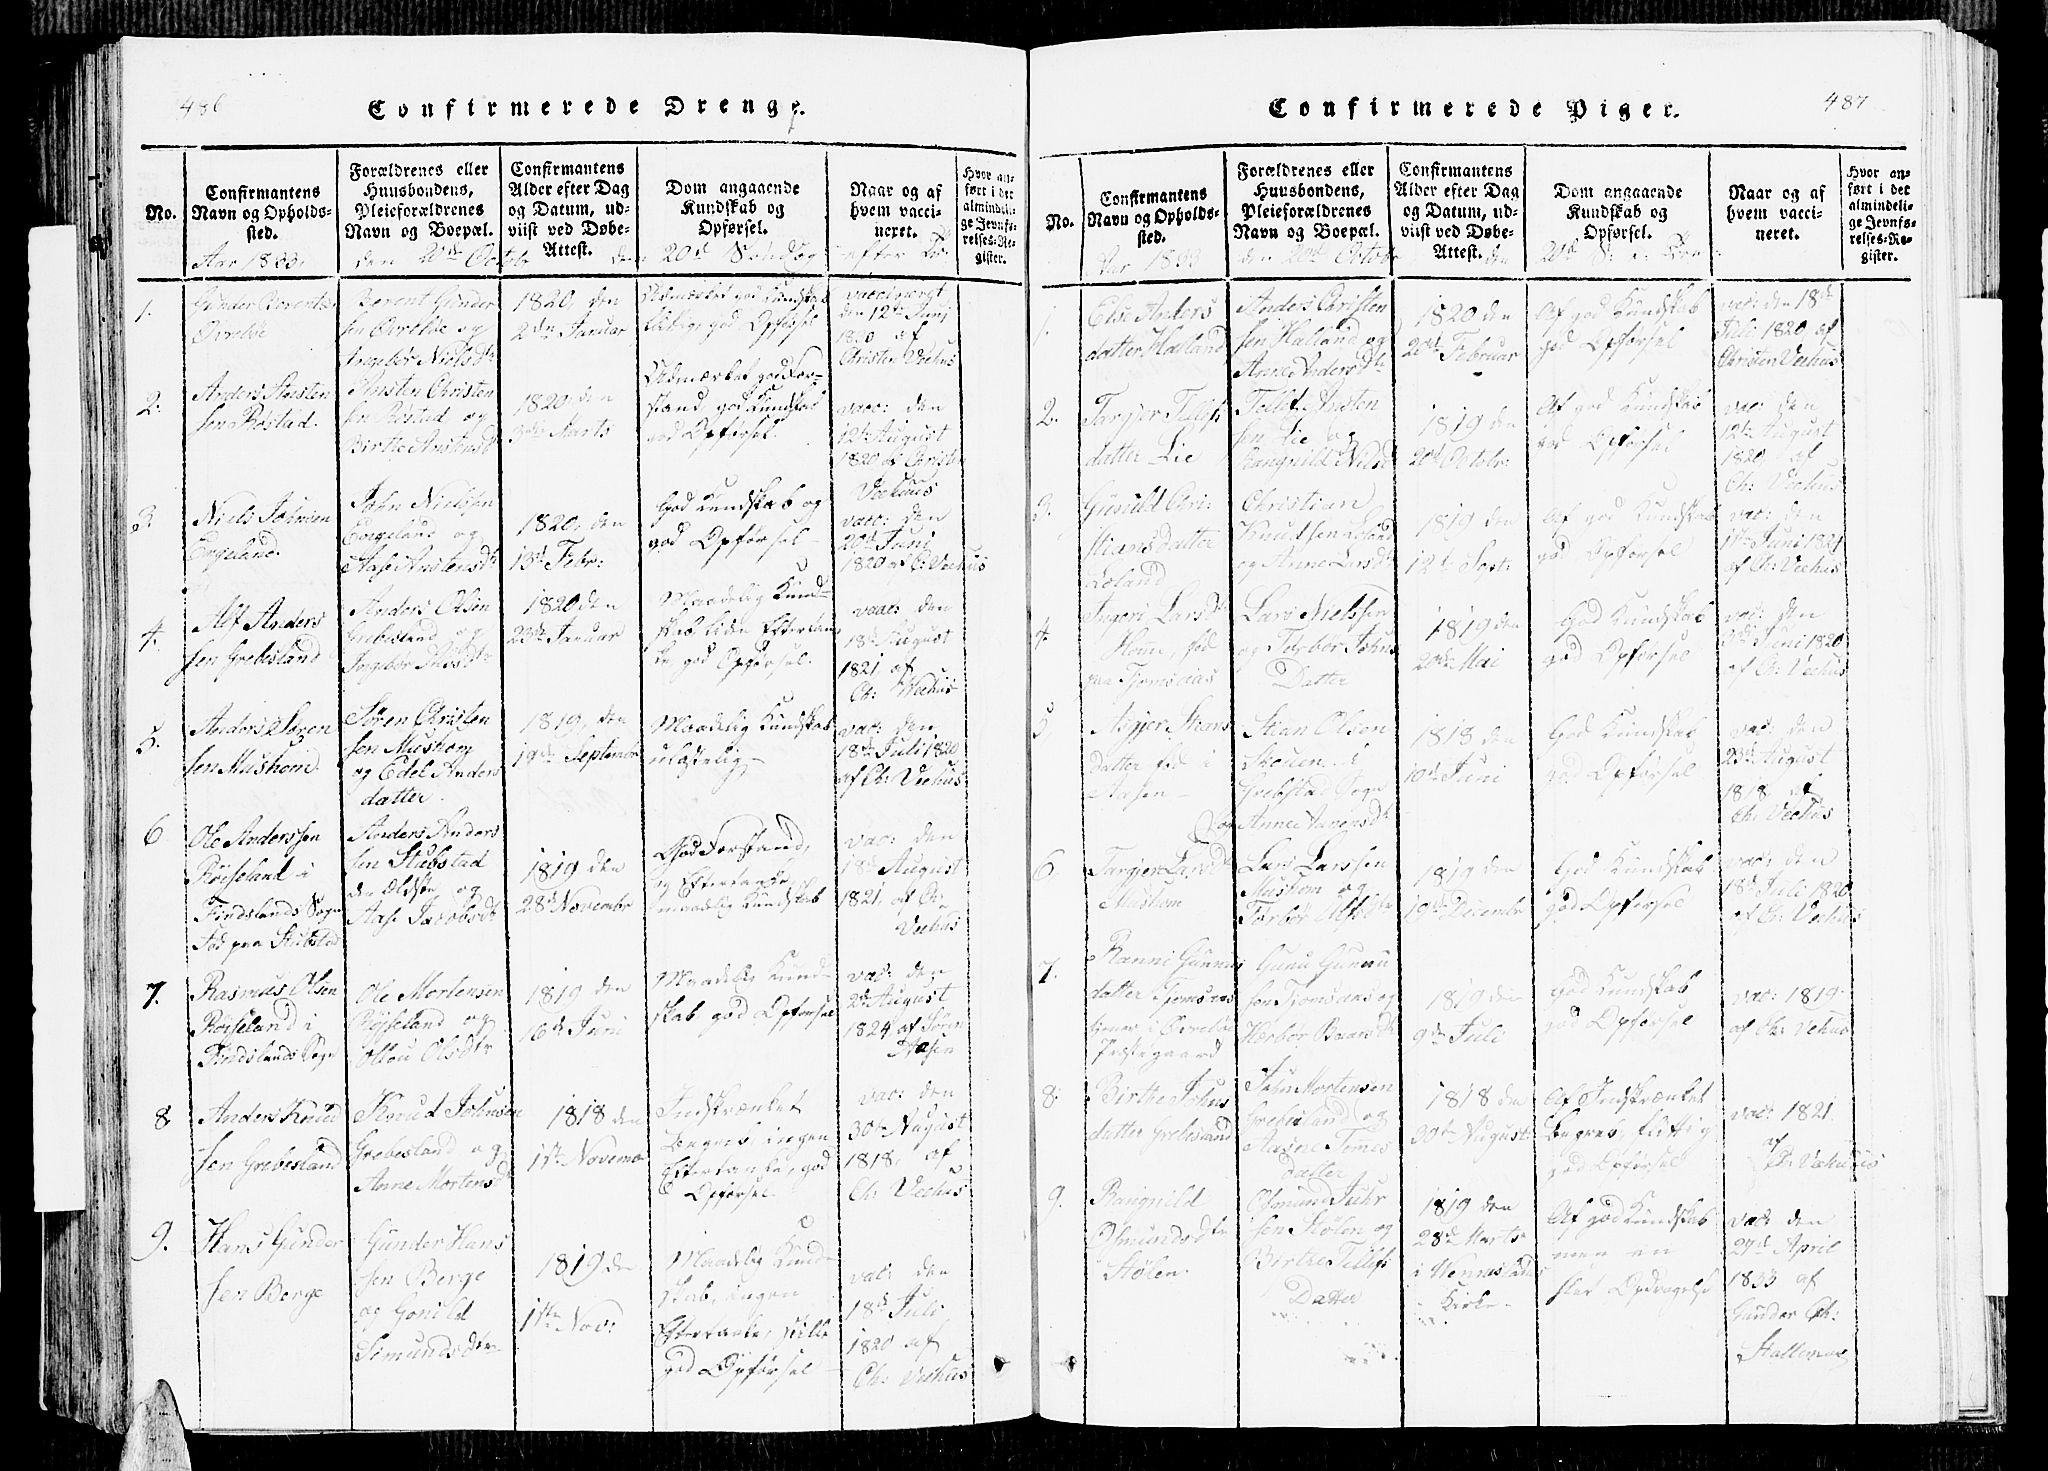 486
Confirmerede Drenge.
No.
Confirmantens
Navn og Opholds-
sted.
Forældrenes eller
Huusbondens,
Pleieforældrenes
Navn og Boepæl.
Confirmantens
Alder efter Dag
og Datum, ud-
viist ved Døbe-
Attest.
Dom angaaende
Kundskab og
Opførsel.
Naar og af
hvem vacci-
neret.
Hvor an-
ført i det
almindeli-
ge Jevnfø-
relses-Re-
gister.
Aar 1833. den 20de Octobr den 20de Søndag efter Tr:
1.
Gunder Berents
Berent Gunder
sen
og
Ingebor Nielsdtr
1820, den
2den Januar
Udmærket god Kundskab
god Opførsel
den 12te Juni
1820 af
Christen Veehus
2.
Anders Austen
sen Røstad.
Austen Christen
sen Røstad og
Birthe Anstensdt
1820 den
3die Marts
Udmærket god For-
stand, god Kundskab
god Opførsel.
vacc: den
12te August
1820 af Christen
Veehus
3.
Niels Johnsen
Engeland.
John Nielsen
Engeland og
Aase Anstensdtr
1820, den
13de Febr:
God Kundskab og
god Opførsel
vacc: den
20de Juni
1820 af C: Veehus
4.
Alf Anders
sen Grebesland
Anders Olsen
Grebesland og
Ingebor
1820 den
23de Januar
Maadelig Kund-
skab liden Eftertan
ke, god Opførsel.
vacc: den
18de August
1821 af
Ch: Veehus
5.
Anders Søren
sen Mushom.
Søren Christen
sen Mushom
og Edel Anders
datter.
1819, den
19de Septembr
Maadelig Kundskab
ulastelig
vac: den
18de Juli 1820
af Ch: Veehus
6
Ole Anderssen
Røiseland i
Findslands Sogn
Fød paa Stubstad
Anders Anders
sen Stubstad
den Ældste og
Aase Jacobsdt
1819 den
28de Novembr
God Forstand,
og Eftertanke
maadlig Kundskab
vac: den
18de August
1821. af Ch.
Veehus
7.
Rasmus Olsen
Røiseland i
Findslands Sogn
Ole Mortensen
Røysseland og
Ollou Olsdtr
1819 den
16de Juni
Maadelig Kund-
skab god Opførsel
vac: den
2de August
1824 af Søren
Aasen
8
Anders Knud
sen Grebesland
Knud Johnsen
Grebesland og
Anne Mortensdt
1818 den
17de Novemb
Indskrænket
Begreb ingen
Eftertanke, god
Opførsel.
vac: den
30te August
1818. af
Ch: Veehus
9.
Hans Gunder
sen Berge
Gunder Hans
sen Berge
og Gonild
Simundsdtr
1819 den
1ste Nov:
Maadelig Kund
skab, ingen
Eftertanke, stille
god Opførsel
vac: den
18de Juli
1820 af
Ch: Veehus
487
Confirmerede Piger.
No.
Confirmantens
Navn og Opholds-
sted.
Forældrenes eller
Huusbondens,
Pleieforældrenes
Navn og Boepæl.
Confirmantens
Alder efter Dag
og Datum, ud-
viist ved Døbe-
Attest.
Dom angaaende
Kundskab og
Opførsel.
Naar og af
hvem vacci-
neret.
Hvor an-
ført i det
almindeli-
ge Jevnfø-
relses-Re-
gister.
Aar 1833 den 20de Octobr den 20de S: e: Tre
1.
Else Anders
datter Halland
Anders Christen
sen Halland og
Anne Andersdtr
1820 den
20de Februar
Af god Kundskab
god Opførsel
vac: den 18de
Juli 1820 af
Christen Veehus
2.
Targjer Tellefs
datter Lie
Tellef Austen
sen Lie og
Rangnild Nilsd
1819 den
20de Octobr:
Af god Kundskab
god Opførsel
vac: den
12te August
1820 af
Ch: Veehus
3.
Gunild Chri:
stians datter
Loland
Christian
Knudsen Loland
og Anne Larsdtr
1819 den
12te Sept:
Af god Kundskab
god Opførsel
vac: den
17de Juni 1821
af Ch: Veehus
4.
Ingeri Larsdtr
fød
paa Tjomsaas
Lars Nielssen
og Torbor Johns
Datter
1819 den
20de Mai
God Kundskab
god Opførsel
vac: den
3die Juni 1820
af Ch: Veehus
5
Asgjer Stians
datter fød i
Aasen
Stian Olsen
Skouen i
Grebstad Sogn
og Anne
1818 den
10de Juni
God Kundskab
god Opførsel
vac: den
23de August
1818 af
Ch: Veehus
6
Targjer Larsdtr
Mushom
Lars Larssen
Mushom og
Torbor Alfsdtr
1819 den
19de Decembr
God Kundskab
god Opførsel
vac: den
18de Juli 1820
af Ch: Veehus
7.
Ranni Gunnu
datter Tjomsaas
tjener i Øvrebøe
Præstegaard
Gunu Gunnu
sen Tjomsaas og
Herbor Baarsdt
1819 den
9de Juli
God Kundskab
god Opførsel
vac: 1819
af Ch: Vehus
8.
Birthe Johns
datter Grebesland
John Mortensen
Grebesland og
Aasne Tomes
datter
1818 den
30te August
Af Indskrænket
Begreb, flittig
god Opførsel
vac: 1821.
af
Ch: Veehus
9.
Rangnild
Osmundsdtr
Stølen.
Osmund Juhr
sen Stølen og
Birthe Tellefs
Datter
1819 den
28de Marts
i Vennslands
Kirke
Af god Kundskab
men en
slet Opdragelse
vac: den
27de April
1833 af
Gunder Ch:
Stallemo